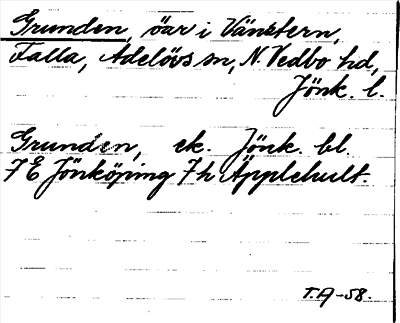 Grunden, öar i Vänstern,
Falla, Adelövs sn, N. Vedbo hd,
Jönk. l.
Grunden, ek. Jönk. bl.
7 E Jönköping 7 h Äpplehult.
T.A -58.